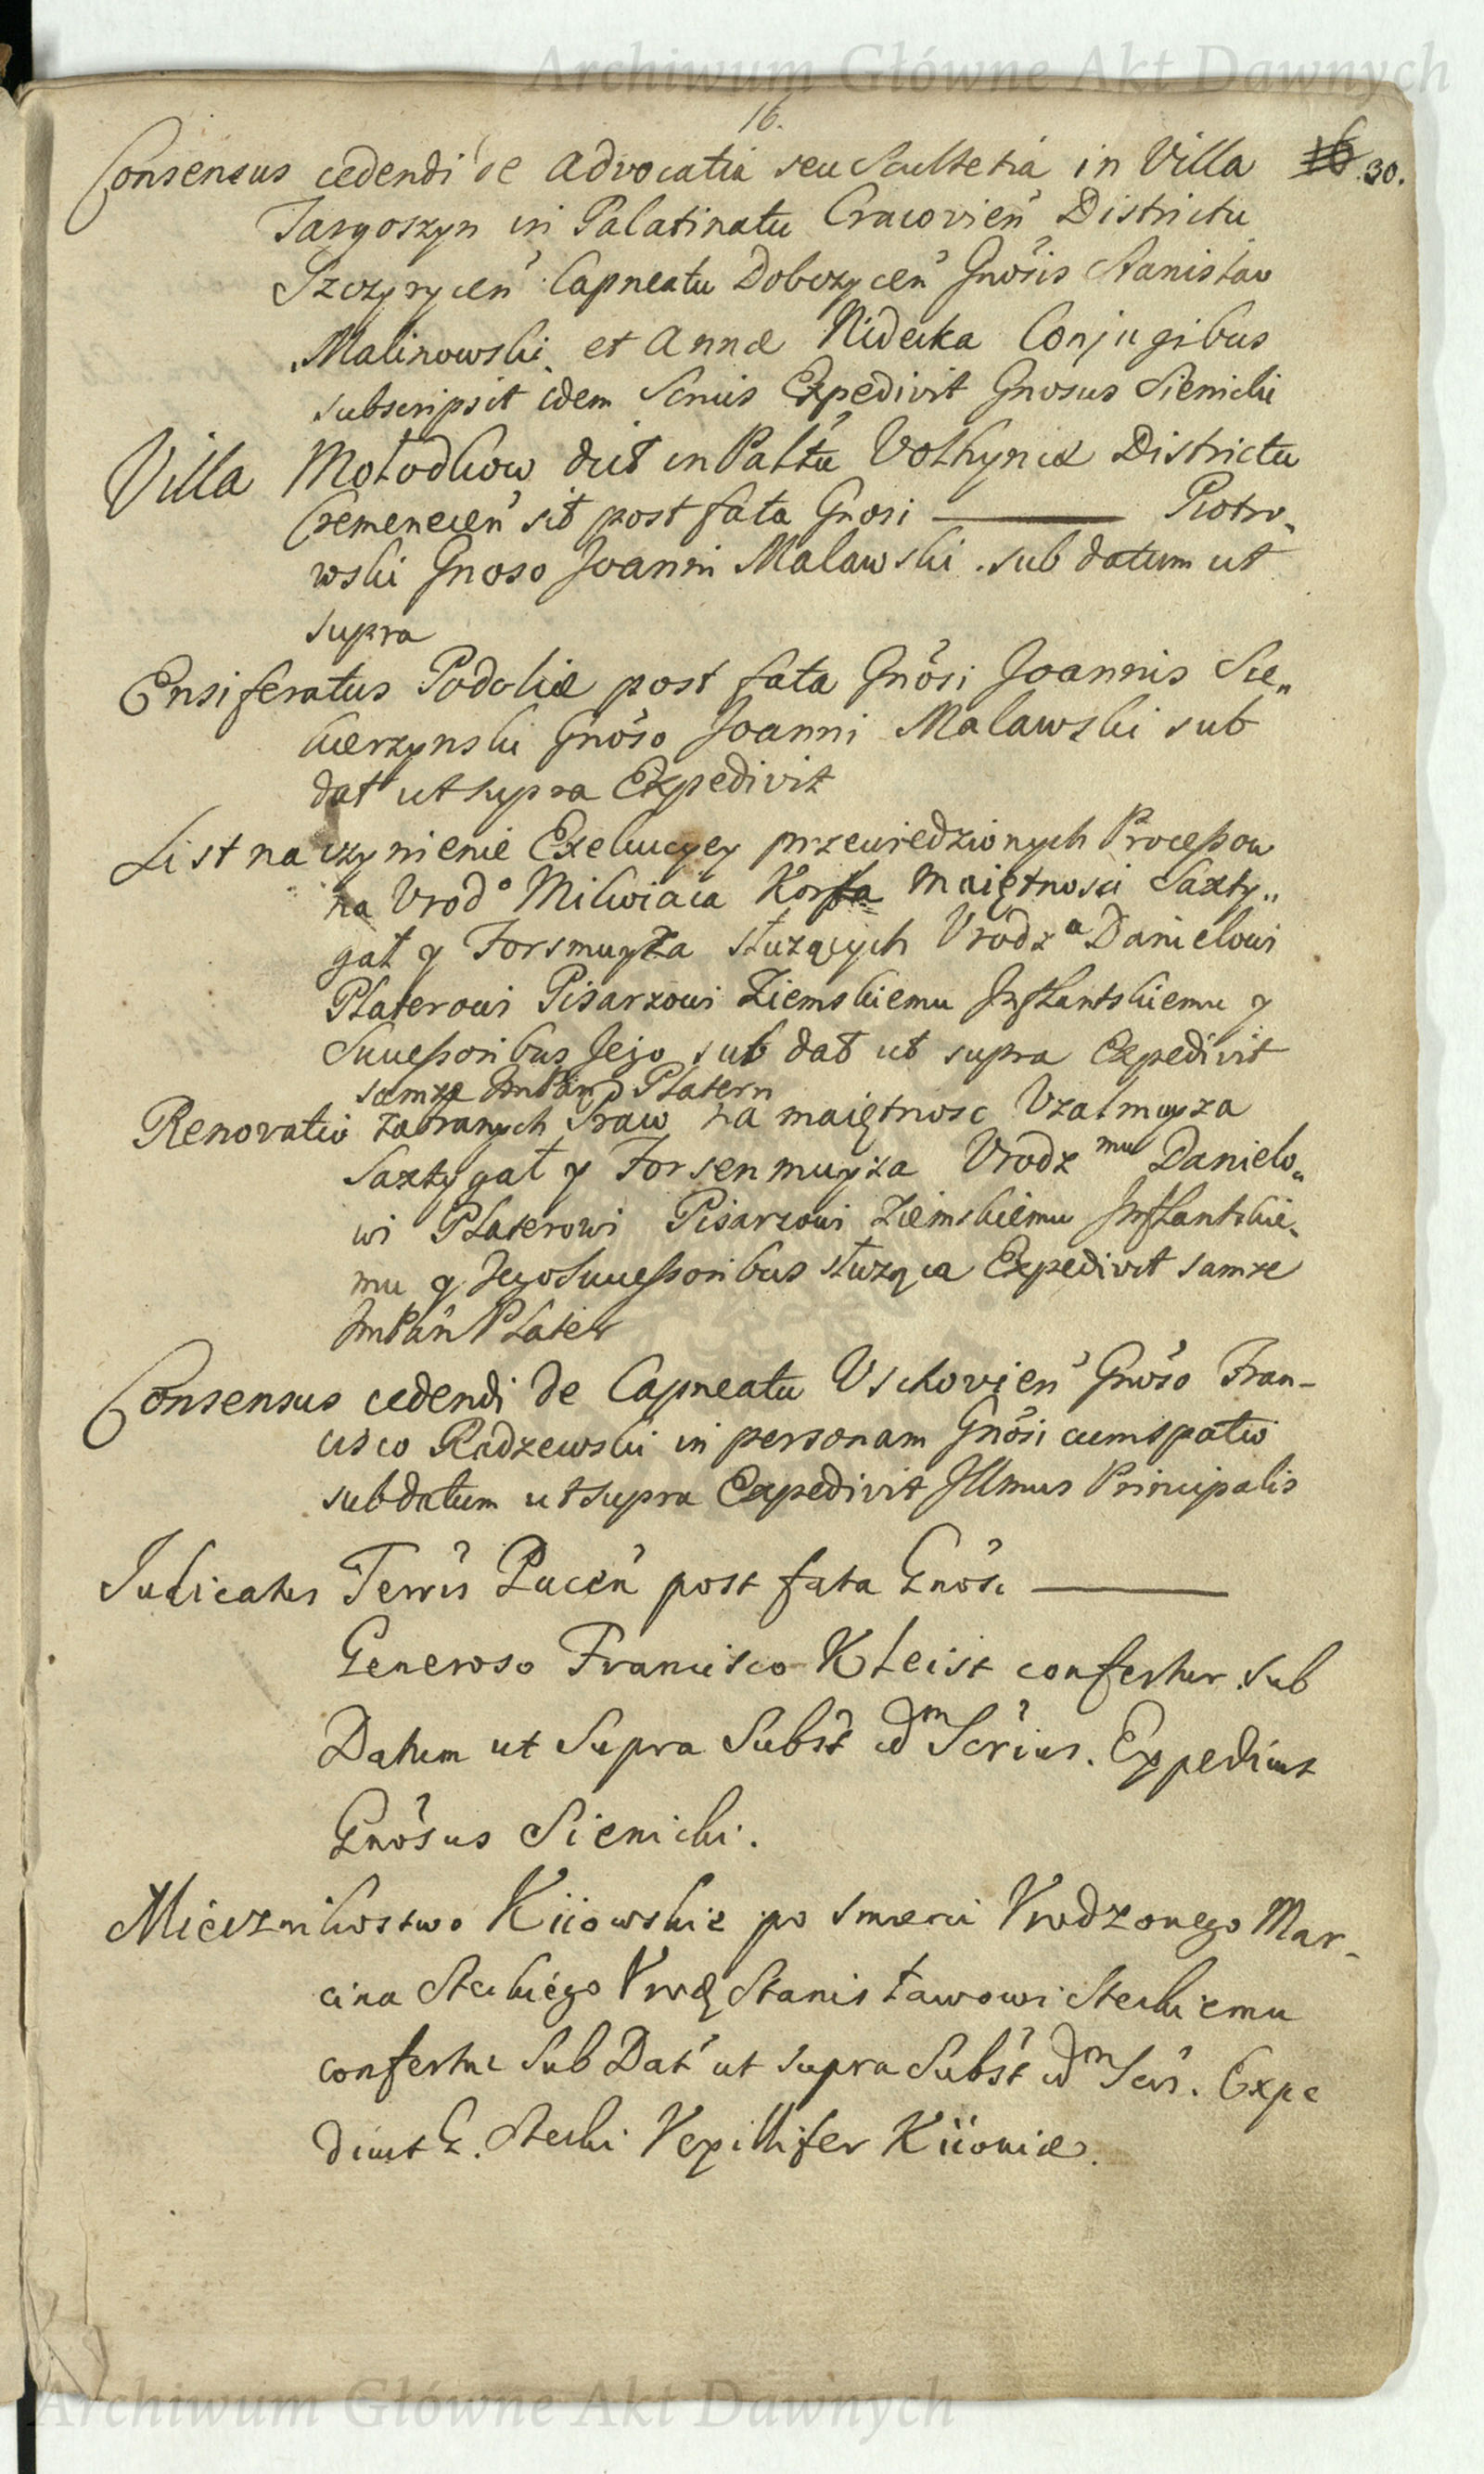 Archiwum Główne Akt Dawnych
16.
Consensus cedendi de Advocatia seu Scultetia in Villa 16 30.
Targoszyn in Palatinatu Cracovien Districtu
Szczyrycen Capneatu Dobczycen Gnosis Stanislao
Malinowski et Annæ Nidecka Conjugibus
subscripsit idem Srnus Expedivit Gnosus Sienicki
Villa Mołodkow dict in Palttu Volhyniæ Districtu
Cremenecen sit post fata Gnosi ——— Piotro„
wski Gnoso Joanni Malawski. sub datum ut
supra
Ensiferatus Podoliæ post fata Gnosi Joannis Sie„
kierzynski Gnoso Joanni Malawski sub
dat ut supra Expedivit
List na czynienie Exekucyey przewiedzionych Processow
na Vrod° Milwiaca Korffa Maiętnosci Saxty„
gat y Forsmuyża służących Vrodz a Danielowi
Platerowi Pisarzowi Ziemskiemu Inflantskiemu y
Successoribus Jego sub dat ut supra Expedivit
samże ImPan Platern
Renovatio zabranych Praw na maiętnosc Vzalmuyza
Saxtygat y Forsenmuyża Vrodz mu Danielo„
wi Platerowi Pisarzowi Ziemskiemu Inflantskie„
mu y Jego Successoribus służąca Expedivit samze
ImPan Plater
Consensus cedendi de Capneatu Vschovien Gnoso Fran-
cisco Radzewski in personam Gnosi cum spatio
sub datum ut supra Expedivit Illmus Principalis
Judicatus Terris Pucen post fata Gnosi ———
Generoso Francisco Kleist confertur sub
Datum ut Supra Subst id m Scrius. Expedivit
Gnosus Sienicki.
Miecznikostwo Kiiowskie po smierci Vrodzonego Mar-
cina Steckiego Vrodz Stanisławowi Steckiemu
confertur Sub Dat ut supra Subst id m Scris. Expe
divit G. Stecki Vexillifer Kiioviæ.
Archiwum Główne Akt Dawnych